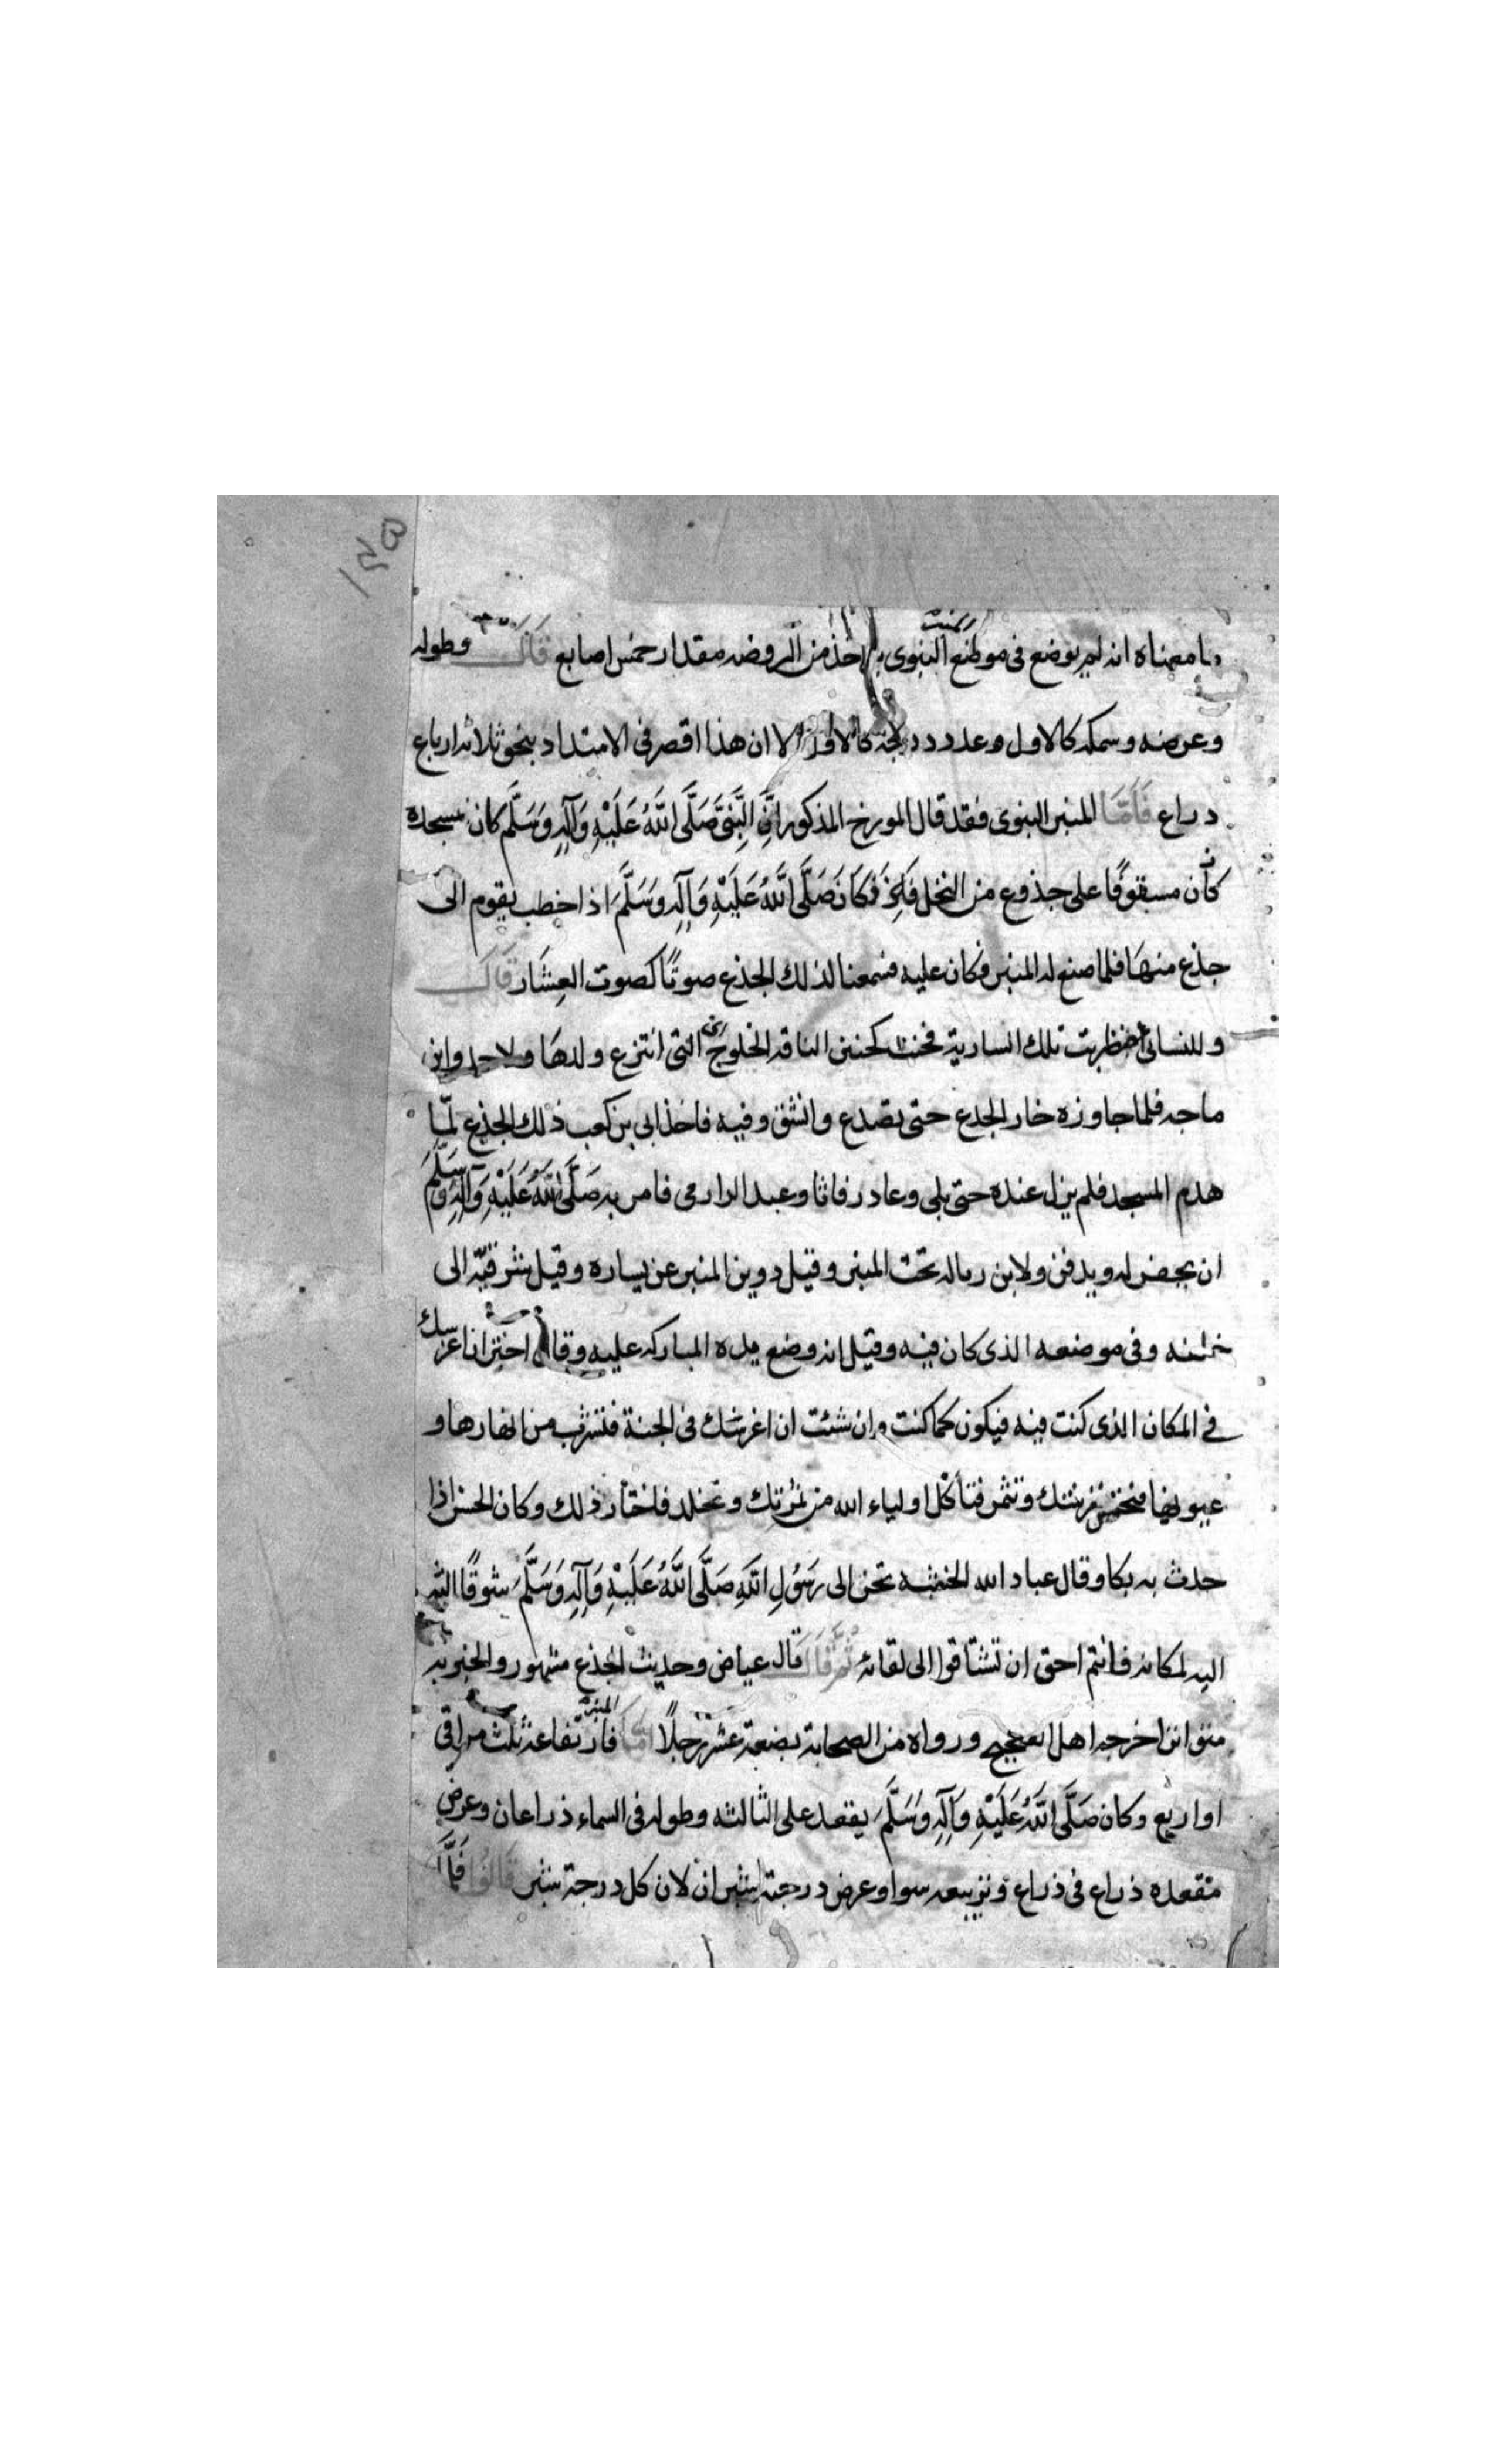 ما معناه انه لم يوضع في موضع المنبر النبوي بل اخذ من الروضه مقدار خمس اصابع قَالَ وطوله
وعرضه وسمكه كالاول وعدد درجه كالاول الا ان هذا اقصر في الامتداد بنحو ثلاثه ارباع
دراع فَاَمَّا المنبر النبوي فقد قال المورخ المذكور انَّ النَّبِيَّ صَلَّى اللهُ عَلَيْهِ وَآلِهِ وَسَلَّم كان مسجده
كأن مسقوفًا على جذوع من النخل فَكَانَ صَلَّى اللهُ عَلَيْهِ وَآلِهِ وَسَلَّمَ اذا خطب يقوم الى
جذع منها فلما صنع له المنبر فكان عليه فسمعنا لذلك الجذع صوتًا كصوت العِشَار قَالَ
وللنسائي اضطربت تلك السارية فحنت كحنين الناقه الخلوج اي التي انتزع ولدها ولاحمد وابن
ماجه فلما جاوزه خار الجدع حتى تصدع وانشق وفيه فاخذ ابي بن كعب ذلك الجذع لمَّا
هدم المسجد فلم يزل عنده حتى بلي وعاد رفاتا وعبد الدارمي فامر به صَلَّى اللهُ عَلَيْهِ وَآلِهِ وَسَلَّم
ان يحفر له ويدفن ولابن رباله تحت المنبر وقيل دوين المنبر عن يساره وقيل شرقيّه الى
خلفه وفي موضعه الذي كان فيه وقيل انه وضع يده المباركه عليه وقال اختر ان اغرسك
في المكان الذي كنت فيه فيكون كما كنت وان شئت ان اغرسك في الجنة فتشرب من انهارها و
عيونها فتحسن نبتتك وتثمر فتأكل اولياء الله من ثمرتك وتخلد فاختار ذلك وكان الحسن اذا
حدث به بكا وقال عباد الله الخشبه تحن الى رَسُولِ اللهِ صَلَّى اللهُ عَلَيْهِ وَآلِهِ وَسَلَّمَ شوقًا اليه
اليه لمكانه فانتم احق ان تشتاقوا الى لقائه ثُمَّ قَالَ قال عياض وحديث الجذع مشهور والخبر به
متواتر اخرجه اهل الصحيح ورواه من الصحابة بضعة عشر رجلًا اما المنبر فارتفاعه ثلث مراقي
او اربع وكان صَلَّى اللهُ عَلَيْهِ وَآلِهِ وَسَلَّمَ يقعد على الثالثه وطوله في السماء ذراعان وعرض
مقعده ذراع في ذراع وتربيعه سوا وعرض درجته شبران لان كل درجة شبر قَالُوا فَلَمَّا